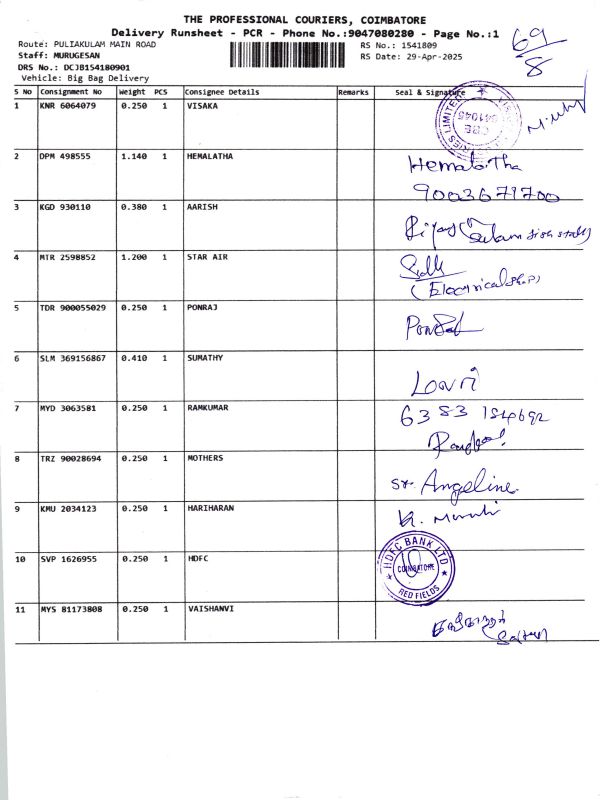 THE PROFESSIONAL COURIERS, COIMBATORE
Delivery Runsheet - PCR - Phone No.:9047080280 - Page No.:1
69/8
Route: PULIAKULAM MAIN ROAD RS No.: 1541809
Staff: MURUGESAN RS Date: 29-Apr-2025
DRS No.: DCJB154180901
Vehicle: Big Bag Delivery
S No Consignment No Weight PCS Consignee Details Remarks Seal & Signature
1 KNR 6064079 0.250 1 VISAKA
2 DPM 498555 1.140 1 HEMALATHA Hemalatha
9003671700
3 KGD 930110 0.380 1 AARISH
4 MTR 2598852 1.200 1 STAR AIR
5 TDR 900055029 0.250 1 PONRAJ
6 SLM 369156867 0.410 1 SUMATHY
7 MYD 3063581 0.250 1 RAMKUMAR
8 TRZ 90028694 0.250 1 MOTHERS Sr. Angeline
9 KMU 2034123 0.250 1 HARIHARAN
10 SVP 1626955 0.250 1 HDFC HDFC BANK LTD
COIMBATORE
RED FIELDS
11 MYS 81173808 0.250 1 VAISHANVI